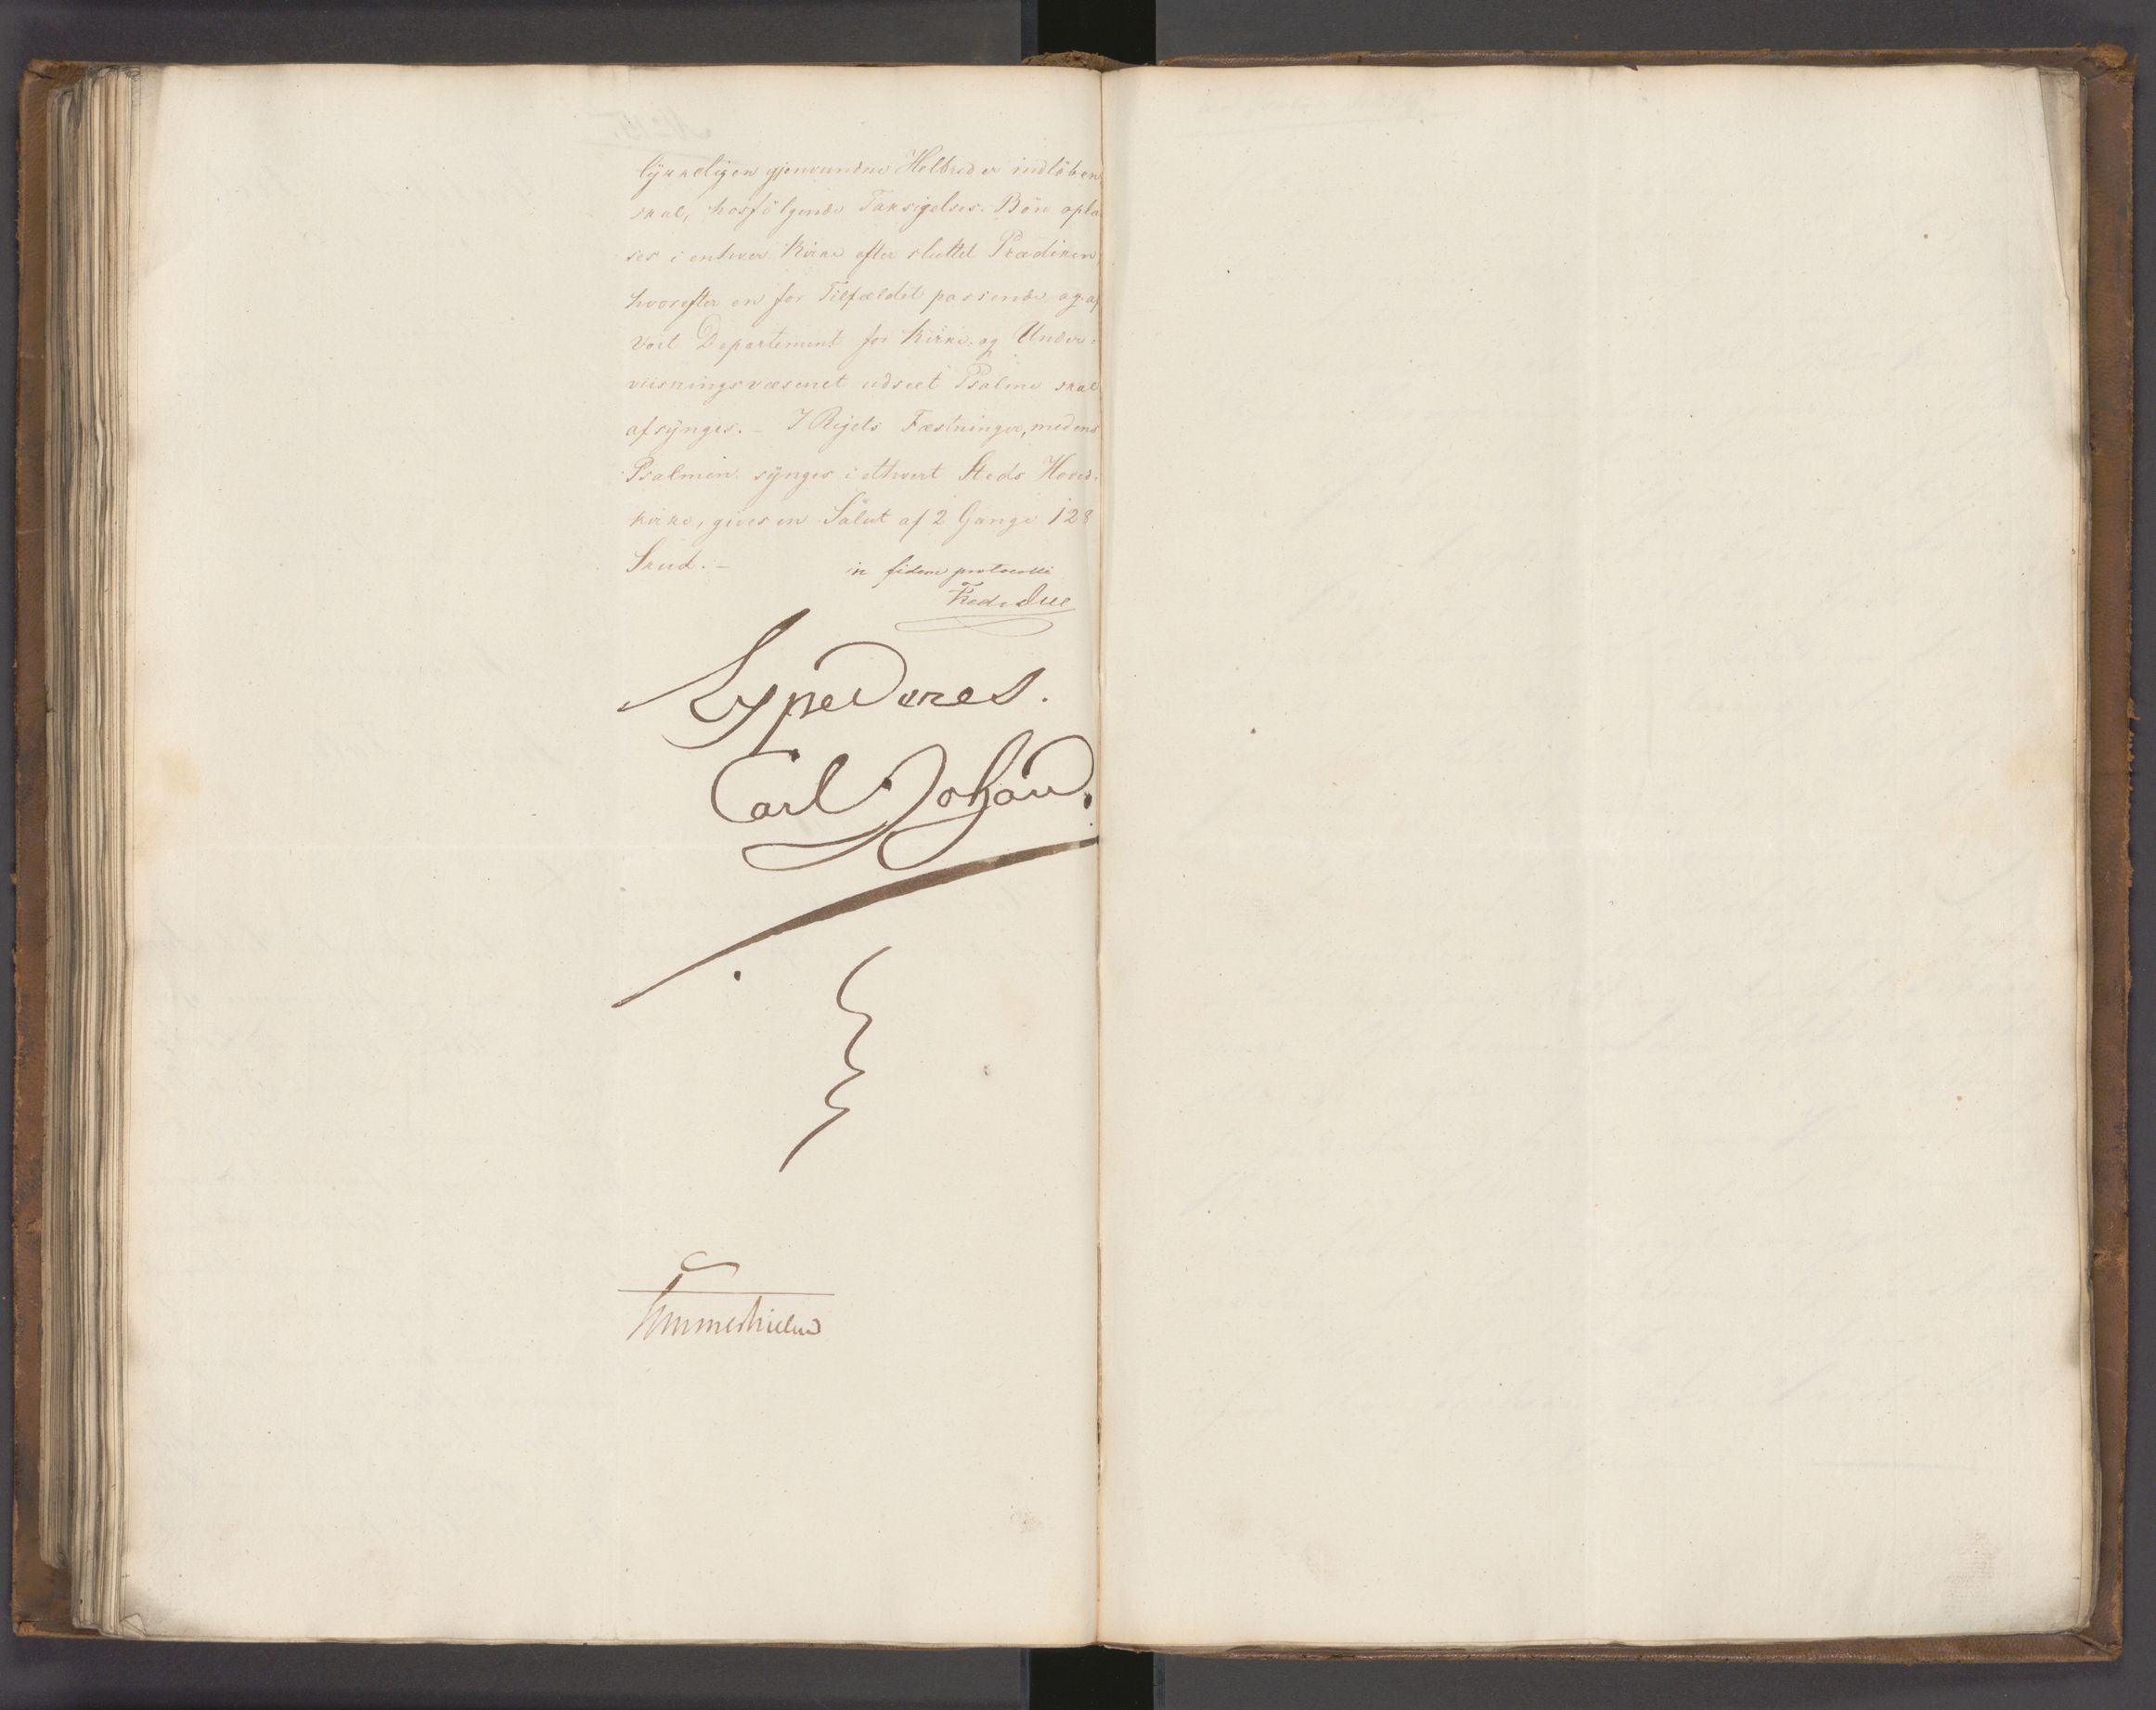 lykkeligen gjenvundne Helbred er indløben
skal, hosfölgende Taksigelses-Bön oplæ
ses i enhver Kirke efter sluttet Prædiken
hvorefter en for Tilfældet passende og af
Vort Departement for Kirke- og Under-
viisningsvæsenet udseet Psalme skal
afsÿnges. – I Rigets Fæstninger, medens
Psalmen sÿnges i ethvert Steds Hoved-
kirke, gives en Salut af 2 Gange 128
Skud. –
in fidem protocolli
Fredr. Due
Expederes.
Carl Johan.